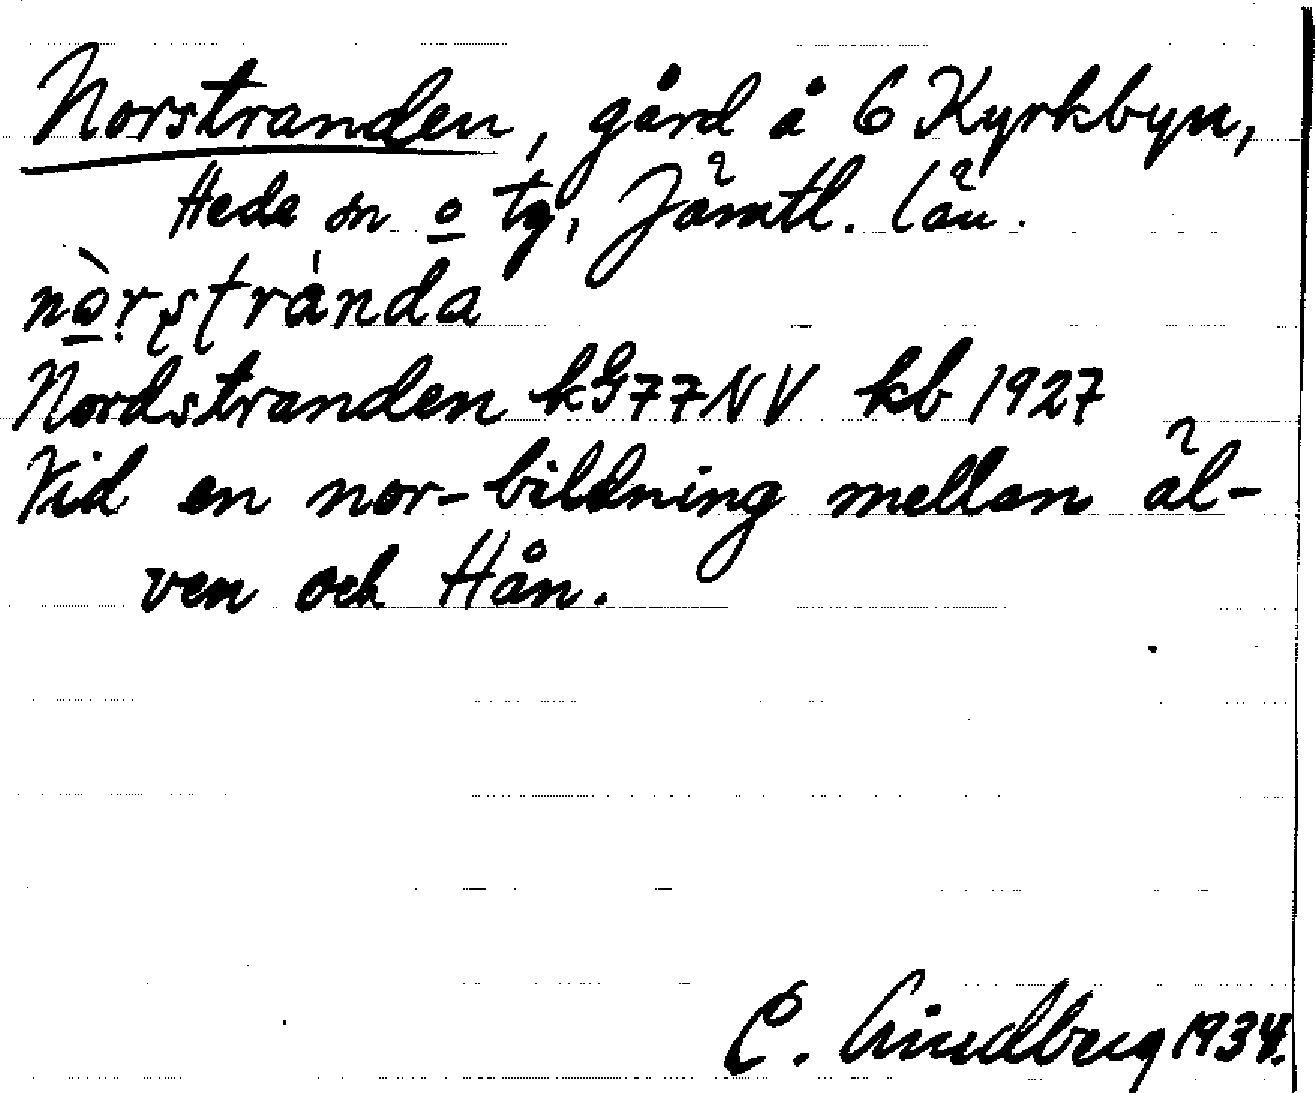 Norstranden, gård å 6 Kyrkbyn,
Hede sn o tg, Jämtl. län.
nò̱rstránda
Nordstranden kG77NV kb 1927
Vid en nor-bildning mellan äl-
ven och Hån.
C. Lindberg 1934.